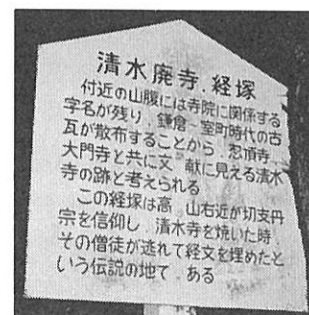 清水廃寺.経塚
付近の山腹には寺院に関係する
字名が残り,鎌倉~室町時代の古
瓦が散布することから 忍頂寺
大門寺と共に文 献に見える清水
寺の跡と考えられる
この経塚は高 山右近が切支丹
宗を信仰し 清水寺を焼いた時
その僧徒が逃れて経文を埋めたと
いう伝説の地て ある